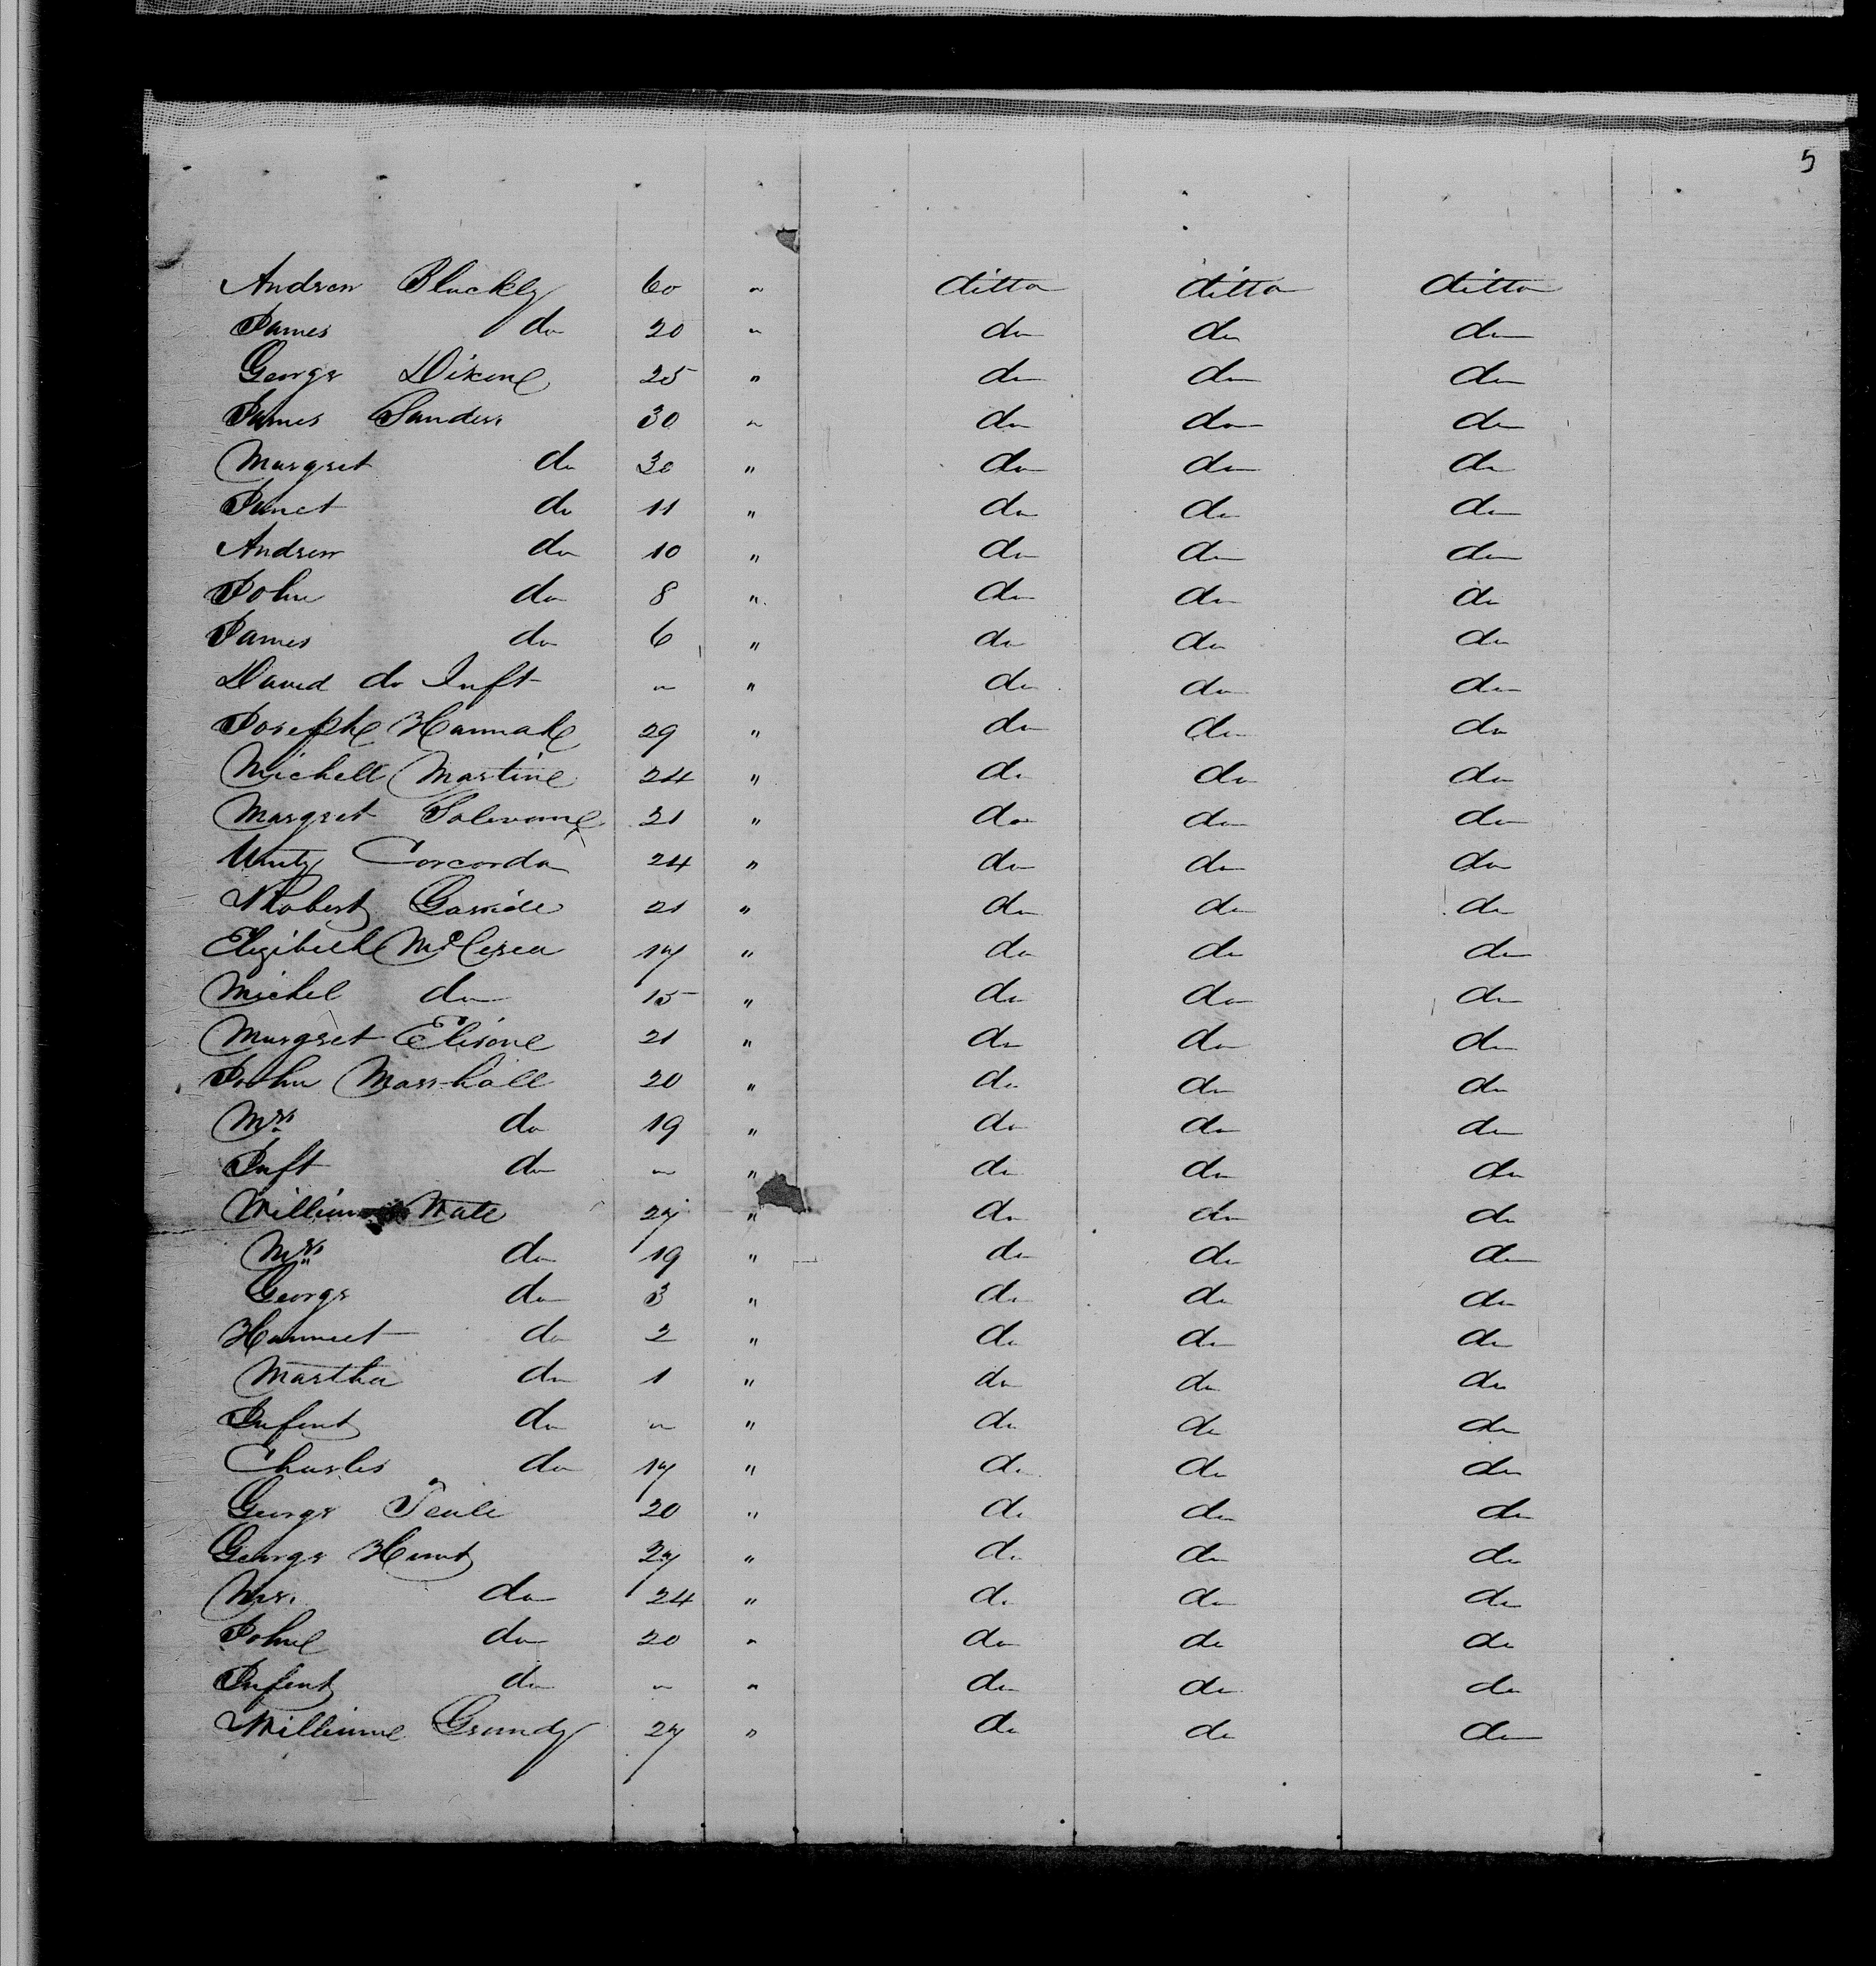 5
Andrew Bluckly 60 " ditto ditto ditto
James do 20 " do do do
George Dixone 25 " do do do
James Sanders 30 " do do do
Margret do 30 " do do do
Janet do 11 " do do do
Andrew do 10 " do do do
John do 8 " do do do
James do 6 " do do do
David do Inft " " do do do
Josephe Hannah 29 " do do do
Michell Martine 24 " do do do
Margret 21 " do do do
Unity Corcordan 24 " do do do
Robert 21 " do do do
Elizibeth McCrea 17 " do do do
Michel do 15 " do do do
Margret Elisone 21 " do do do
John Marshall 20 " do do do
Mrs do 19 " do do do
Inft do " " do do do
William Wate 27 " do do do
Mrs do 19 " do do do
George do 3 " do do do
do 2 " do do do
Martha do 1 " do do do
Infent do " " do do do
Charles do 17 " do do do
George 20 " do do do
George Hunt 27 " do do do
Mrs. do 24 " do do do
Johne do 20 " do do do
Infent do " " do do do
Williame Grundy 27 " do do do